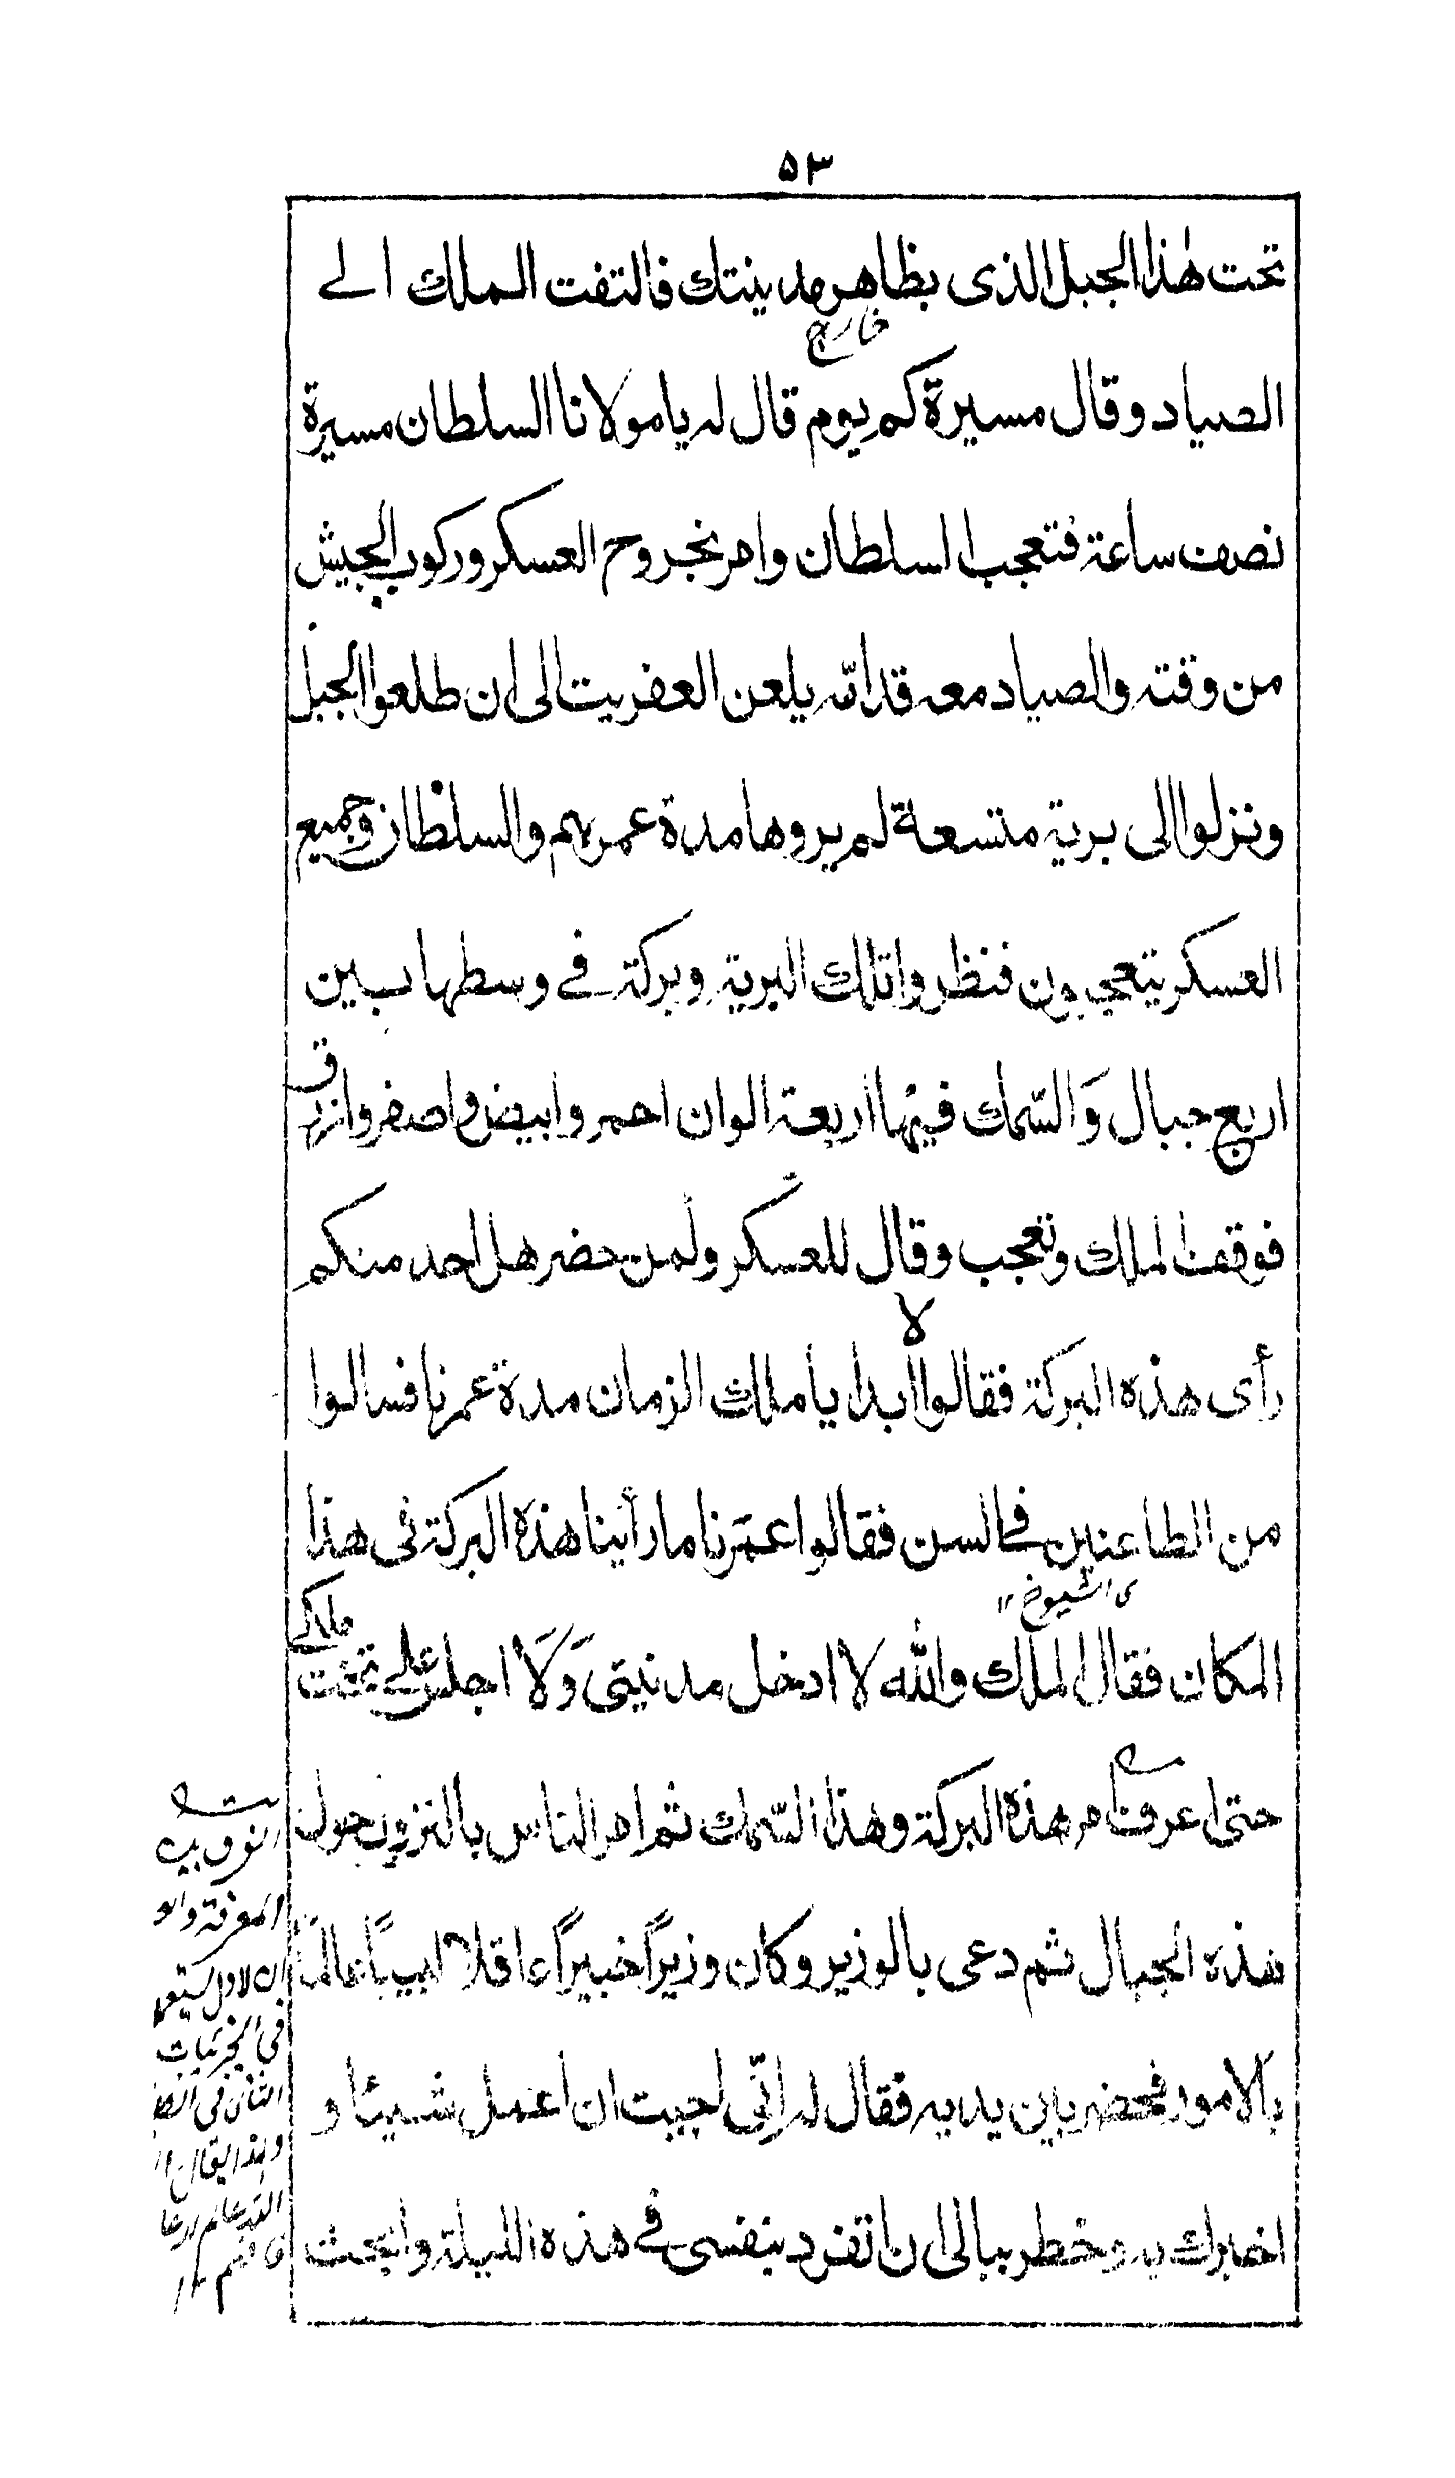 ۵۳
تحت هٰذا الجبل الذى بظاهر مدينتك فالتفت الملك الے
خارج
الصياد وقال مسيرة كم يوم قال له يا مولانا السلطان مسيرة
نصف ساعة فتعجب السلطان وامر بخروج العسكر وركوب الجيش
من وقته والصياد معه قدامه يلعن العفريت الى ان طلعوا الجبل
ونزلوا الى برية متسعة لم يروها مدة عمرهم والسلطان وجميع
العسكر يتعجبون فنظروا تلك البرية وبركة فے وسطها بين
اربع جبال وَالسّمك فيها اربعة الوان احمر وابيض واصفر وازرق
فوقف الملك وتعجب وقال للعسكر ولمن حضر هل احد منكم
رأى هذه البركة فقالوا لا ابدا يا ملك الزمان مدة عمرنا فسالوا
من الطاعنين فے السن فقالوا عمَرنا ما رأينا هذه البركة فى هذا
ى الشيوخ ۱۲
المكان فقال الملك والله لا ادخل مدنيتى وَلَا اجلس علے تخت ملكے
حتى اعرف امر هذه البركة وهذا السّمك ثم امر الناس بالنزول حول
هذه الجبال ثم دعى بالوزير وكان وزيراً خبيراً عاقلا لبيباً عالمًا
بالامور فحضر بين يديه فقال له انّى احببت ان اعمل شيئا و
اخبرك به وخطر ببالى ان اتفرد بنفسى فے هذه الليلة وابحث
الفرق بين
المعرفة والعلم
فى الجزئيات